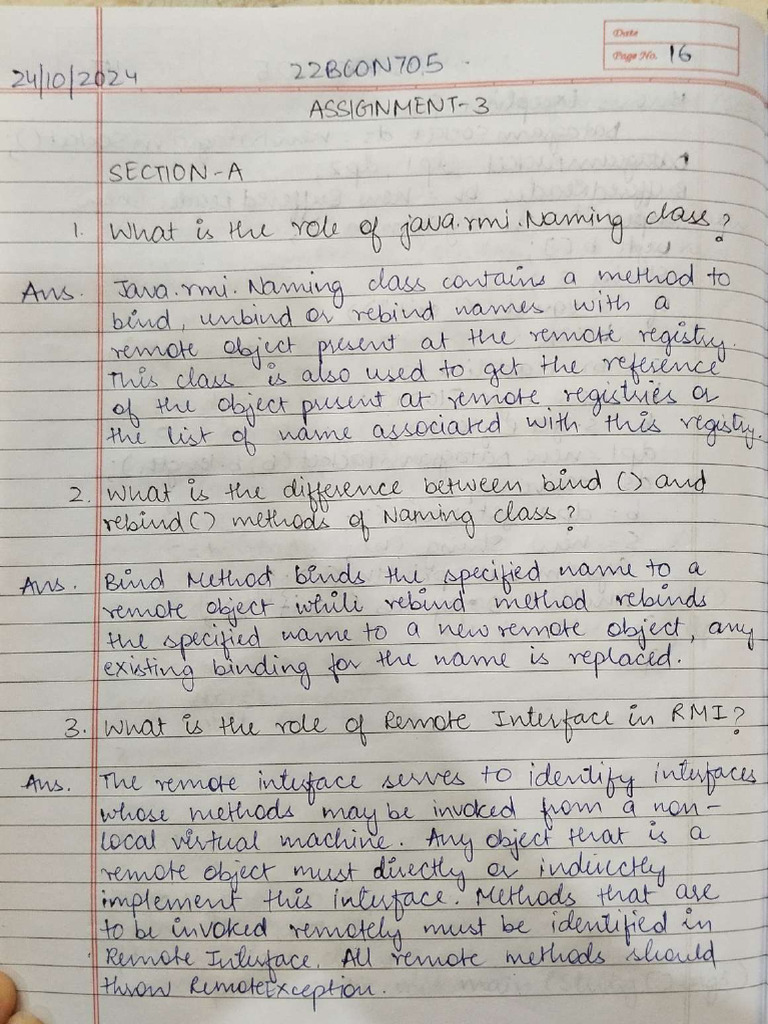 Date
Page No. 16
24/10/2024 22BCON705
ASSIGNMENT-3
SECTION-A
1. What is the role of java.rmi.Naming class?
Ans. Java.rmi.Naming class contains a method to
bind, unbind or rebind names with a
remote object present at the remote registry.
This class is also used to get the reference
of the object present at remote registries or
the list of name associated with this registry.
2. What is the difference between bind () and
rebind() methods of Naming class?
Ans. Bind Method binds the specified name to a
remote object while rebind method rebinds
the specified name to a new remote object, any
existing binding for the name is replaced.
3. What is the role of Remote Interface in RMI?
Ans. The remote interface serves to identify interfaces
whose methods may be invoked from a non-
local virtual machine. Any object that is a
remote object must directly or indirectly
implement this interface. Methods that are
to be invoked remotely must be identified in
Remote Interface. All remote methods should
throw RemoteException.